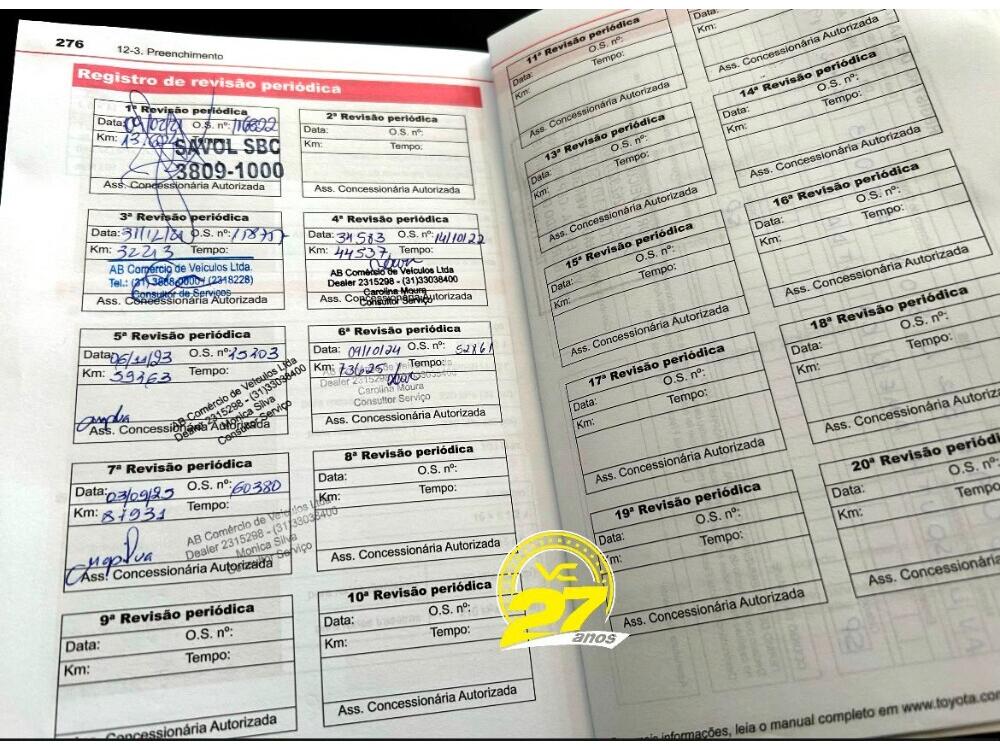 276
12-3. Preenchimento
Registro de revisão periódica
1ª Revisão periódica
Data: 09/02/21 O.S. nº:
Km:
SAVOL SBC
3809-1000
Ass. Concessionária Autorizada
2ª Revisão periódica
Data: O.S. nº:
Km: Tempo:
Ass. Concessionária Autorizada
3ª Revisão periódica
Data: 31/12/21 O.S. nº:
Km: 32213 Tempo:
AB Comércio de Veículos Ltda.
Tel.: (31) (2318228)
Consultor de Serviços
Ass. Concessionária Autorizada
4ª Revisão periódica
Data: 34583 O.S. nº: 14/10/22
Km: 44537 Tempo:
AB Comércio de Veículos Ltda
Dealer 2315298 - (31)33038400
Carolina Moura
Consultor Serviço
Ass. Concessionária Autorizada
5ª Revisão periódica
Data: 06/11/23 O.S. nº:
Km: 59263 Tempo:
AB Comércio de Veículos Ltda
Dealer 2315298 - (31)33038400
Monica Silva
Consultor Serviço
Ass. Concessionária Autorizada
6ª Revisão periódica
Data: 09/10/24 O.S. nº: 52861
Km: 73625 Tempo:
AB Comércio de Veículos Ltda
Dealer 2315298 - (31)33038400
Carolina Moura
Consultor Serviço
Ass. Concessionária Autorizada
7ª Revisão periódica
Data: 03/09/25 O.S. nº: 60380
Km: 87931 Tempo:
AB Comércio de Veículos Ltda
Dealer 2315298 - (31)33038400
Monica Silva
Consultor Serviço
Ass. Concessionária Autorizada
8ª Revisão periódica
Data: O.S. nº:
Km: Tempo:
Ass. Concessionária Autorizada
9ª Revisão periódica
Data: O.S. nº:
Km: Tempo:
Ass. Concessionária Autorizada
10ª Revisão periódica
Data: O.S. nº:
Km: Tempo:
Ass. Concessionária Autorizada
11ª Revisão periódica
Data: O.S. nº:
Km: Tempo:
Ass. Concessionária Autorizada
Data:
Km:
Ass. Concessionária Autorizada
13ª Revisão periódica
Data: O.S. nº:
Km: Tempo:
Ass. Concessionária Autorizada
14ª Revisão periódica
Data: O.S. nº:
Km: Tempo:
Ass. Concessionária Autorizada
15ª Revisão periódica
Data: O.S. nº:
Km: Tempo:
Ass. Concessionária Autorizada
16ª Revisão periódica
Data: O.S. nº:
Km: Tempo:
Ass. Concessionária Autorizada
17ª Revisão periódica
Data: O.S. nº:
Km: Tempo:
Ass. Concessionária Autorizada
18ª Revisão periódica
Data: O.S. nº:
Km: Tempo:
Ass. Concessionária Autorizada
19ª Revisão periódica
Data: O.S. nº:
Km: Tempo:
Ass. Concessionária Autorizada
20ª Revisão periódi
Data: O.S. nº:
Km: Tempo
Ass. Concessionária
informações, leia o manual completo em www.toyota.co
VC
27
anos